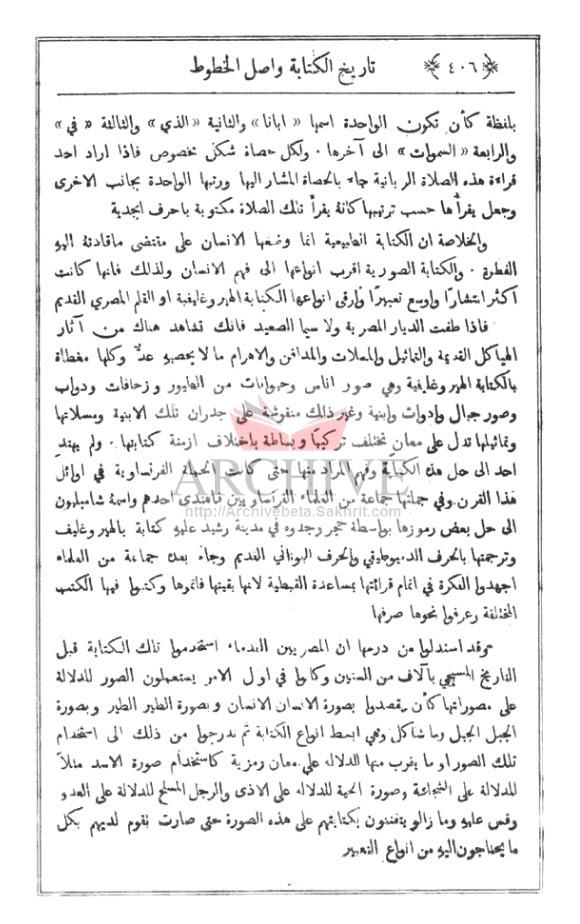 ﴿٤٠٦﴾ تاريخ الكتابة واصل الخطوط
بلفظة كأن تكون الواحدة اسمها « ابانا » والثانية « الذي » والثالثة « في »
والرابعة « السموات » الى آخرها · ولكل حصاة شكل مخصوص فاذا اراد احد
قراءة هذه الصلاة الربانية جاء بالحصاة المشار اليها ورتبها الواحدة بجانب الاخرى
وجعل يقرأها حسب ترتيبها كانهُ يقرأ تلك الصلاة مكتوبة باحرف ابجدية
والخلاصة ان الكتابة الطبيعية انما وضعها الانسان على مقتضى ماقادتهُ اليهِ
الفطرة · والكتابة الصورية اقرب انواعها الى فهم الانسان ولذلك فانها كانت
اكثر انتشارًا واوسع تعبيرًا وارقى انواعها الكتابة الهيروغليفية او القلم المصري القديم
فاذا طفت الديار المصرية ولا سيما الصعيد فانك تشاهد هناك من آثار
الهياكل القديمة والتماثيل والمسلات والمدافن والاهرام ما لا يحصيهِ عدٌّ وكلها مغطاة
بالكتابة الهيروغليفية وهي صور اناس وحيوانات من الطيور وزحافات ودواب
وصور جبال وادوات وابنية وغير ذلك منقوشة على جدران تلك الابنية ومسلاتها
وتماثيلها تدل على معان تختلف تركيبًا وبساطة باختلاف ازمنة كتابتها · ولم يهتدِ
احد الى حل هذه الكتابة وفهم المراد منها حتى كانت الحملة الفرنساوية في اوائل
هذا القرن وفي جملتها جماعة من العلماء الفرنساويين فاهتدى احدهم واسمهُ شامبليون
الى حل بعض رموزها بواسطة حجر وجدوه في مدينة رشيد عليهِ كتابة بالهيروغليف
وترجمتها بالحرف الديموطيقي والحرف اليوناني القديم وجاء بعدهُ جماعة من العلماء
اجهدوا الفكرة في اتمام قرائتها بمساعدة القبطية لانها بقيتها فاتموها وكتبوا فيها الكتب
المختلفة وعرفوا نحوها صرفها
وقد استدلوا من درسها ان المصريين القدماء استخدموا تلك الكتابة قبل
التاريخ المسيحي بآلاف من السنين وكانوا في اول الامر يستعملون الصور للدلالة
على مصوراتها كأن يقصدوا بصورة الانسان الانسان وبصورة الطير الطير وبصورة
الجبل الجبل وما شاكل وهي ابسط انواع الكتابة ثم تدرجوا من ذلك الى استخدام
تلك الصور او ما يقرب منها للدلالة على معان رمزية كاستخدام صورة الاسد مثلاً
للدلالة على الشجاعة وصورة الحية للدلالة على الاذى والرجل المسلح للدلالة على العدو
وقس عليهِ وما زالوا يتفننون بكتابتهم على هذه الصورة حتى صارت تقوم لديهم بكل
ما يحتاجون اليهِ من انواع التعبير
ARCHIVE
http://Archivebeta.Sakhrit.com